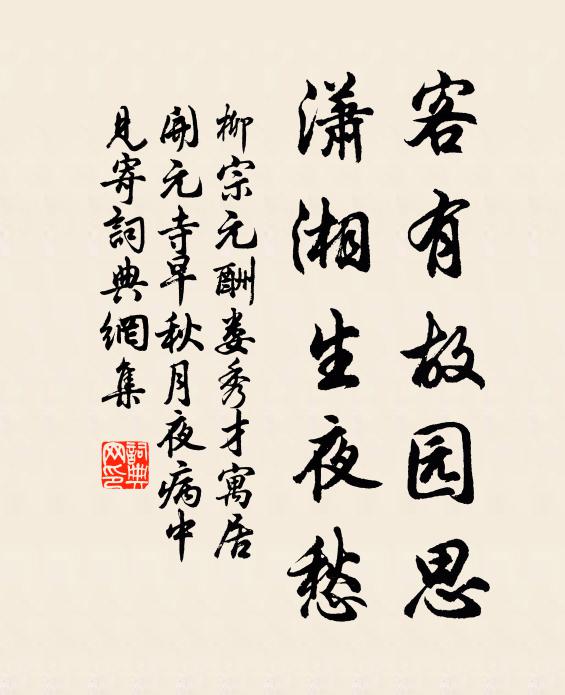 客有故园思
瀟湘生夜愁
柳宗元酬娄秀才寓居
開元寺早秋月夜病中
見寄詞典網集
詞典
网印